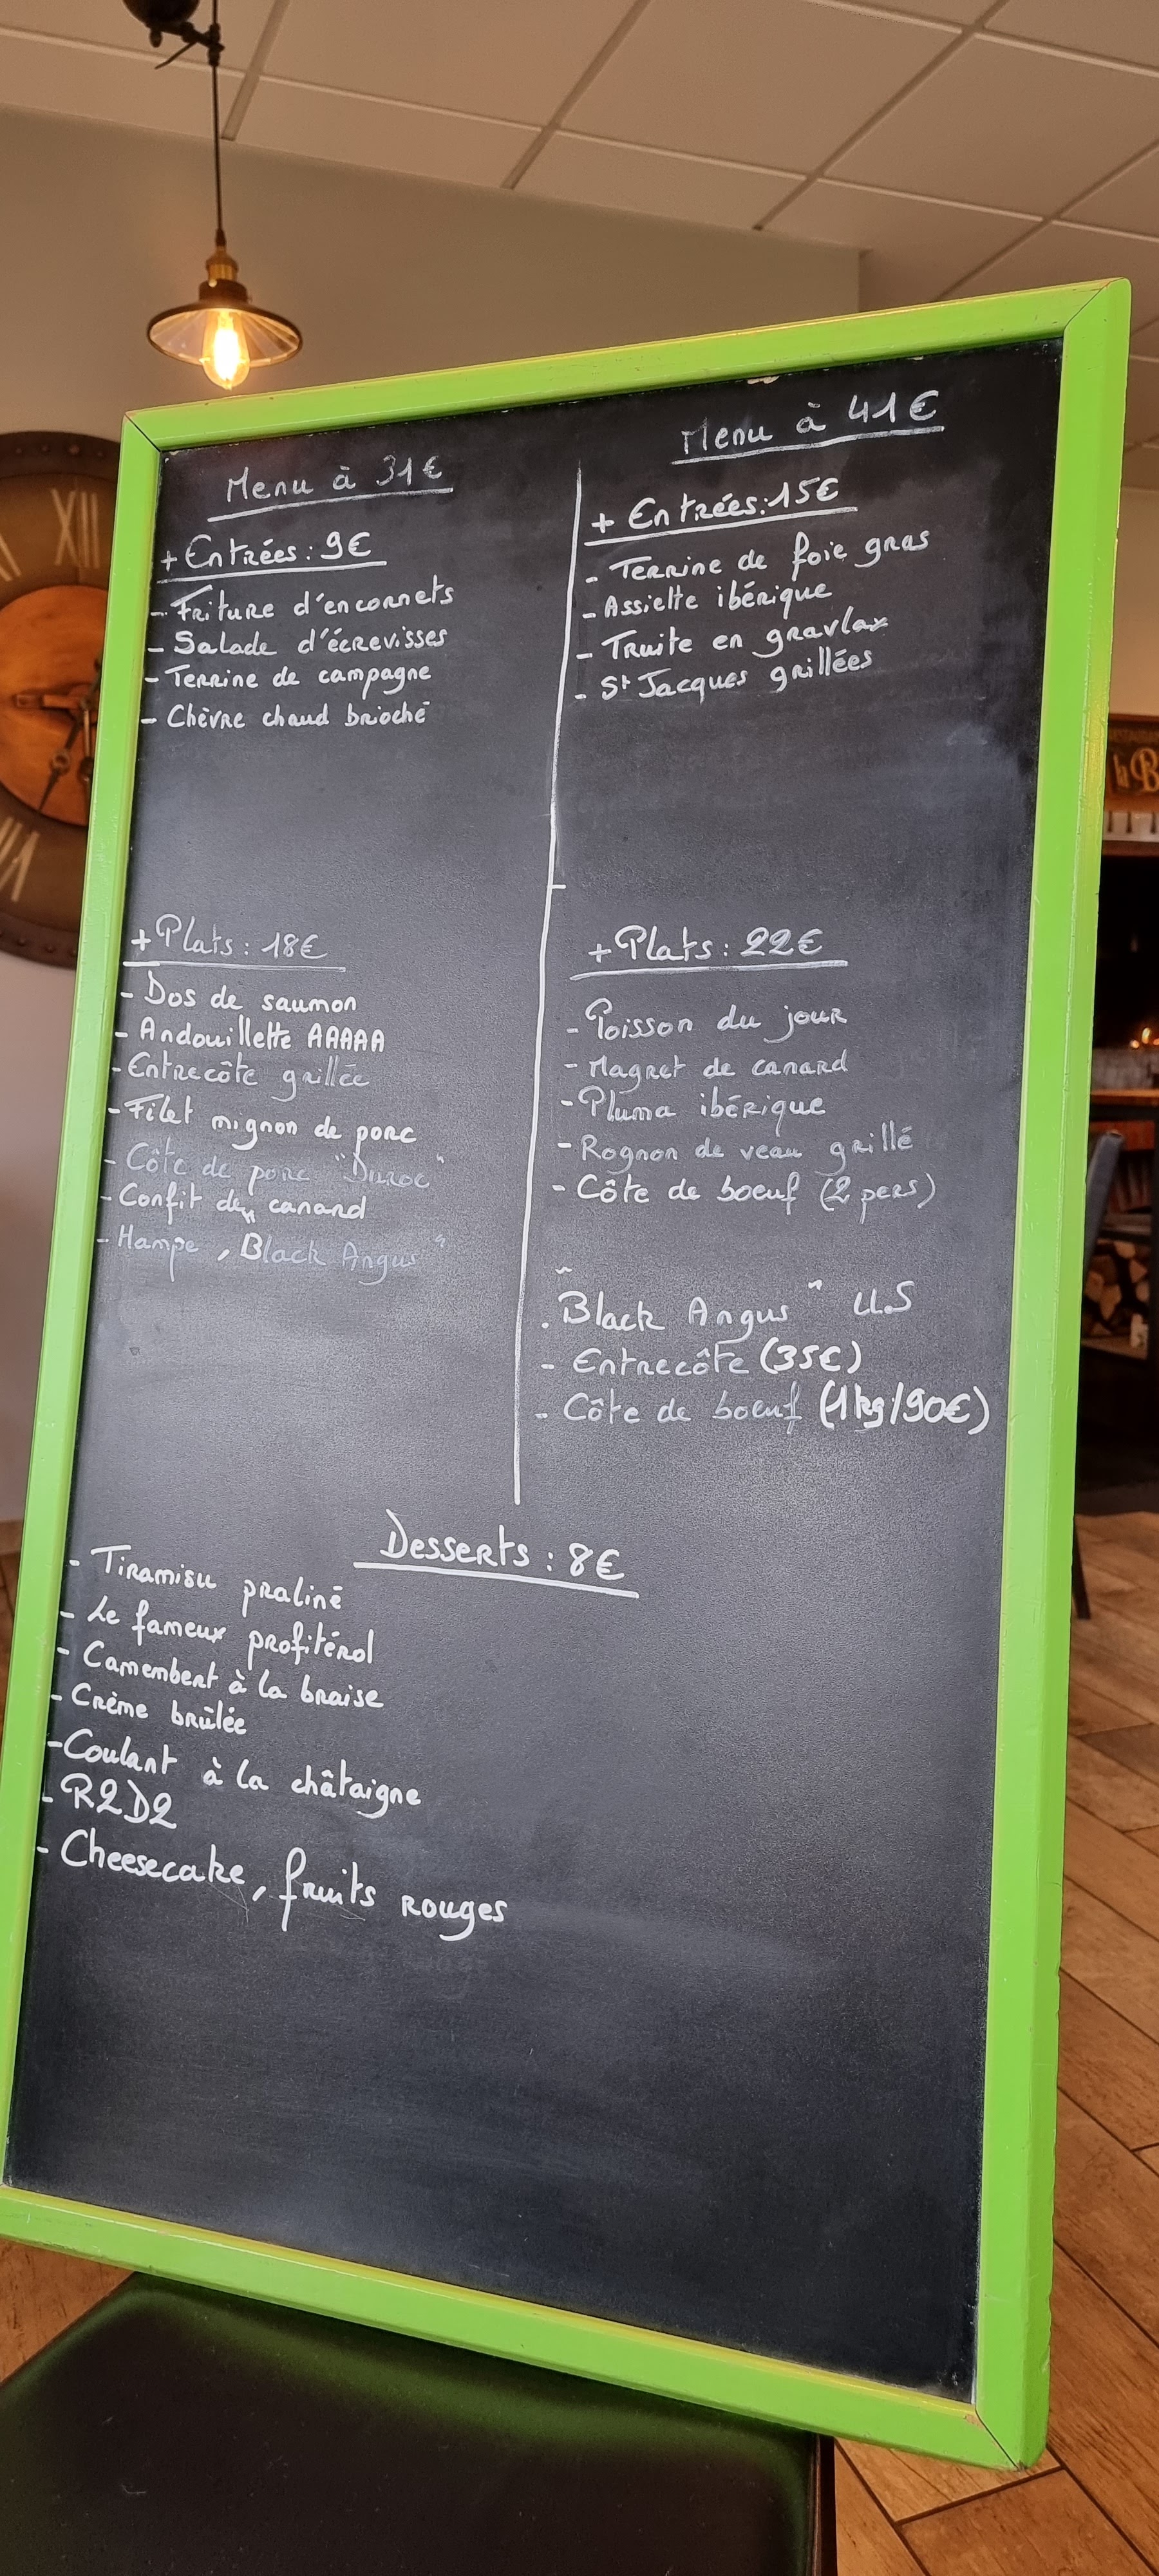 Menu à 31€
+ Entrées : 9€
- Friture d'encornets
- Salade d'écrevisses
- Terrine de campagne
- Chèvre chaud brioché
+ Plats : 18€
- Dos de saumon
- Andouillette AAAAA
- Entrecôte grillée
- Filet mignon de porc
- Côte de porc "Duroc"
- Confit de canard
- Hampe "Black Angus"
Menu à 41€
+ Entrées : 15€
- Terrine de foie gras
- Assiette ibérique
- Truite en gravlax
- St Jacques grillées
+ Plats : 22€
- Poisson du jour
- Magret de canard
- Pluma ibérique
- Rognon de veau grillé
- Côte de boeuf (2 pers)
. "Black Angus" U.S
- Entrecôte (35€)
- Côte de boeuf (1kg/90€)
Desserts : 8€
- Tiramisu praliné
- Le fameux profitérol
- Camembert à la braise
- Crème brûlée
- Coulant à la châtaigne
- R2D2
- Cheesecake, fruits rouges
XII